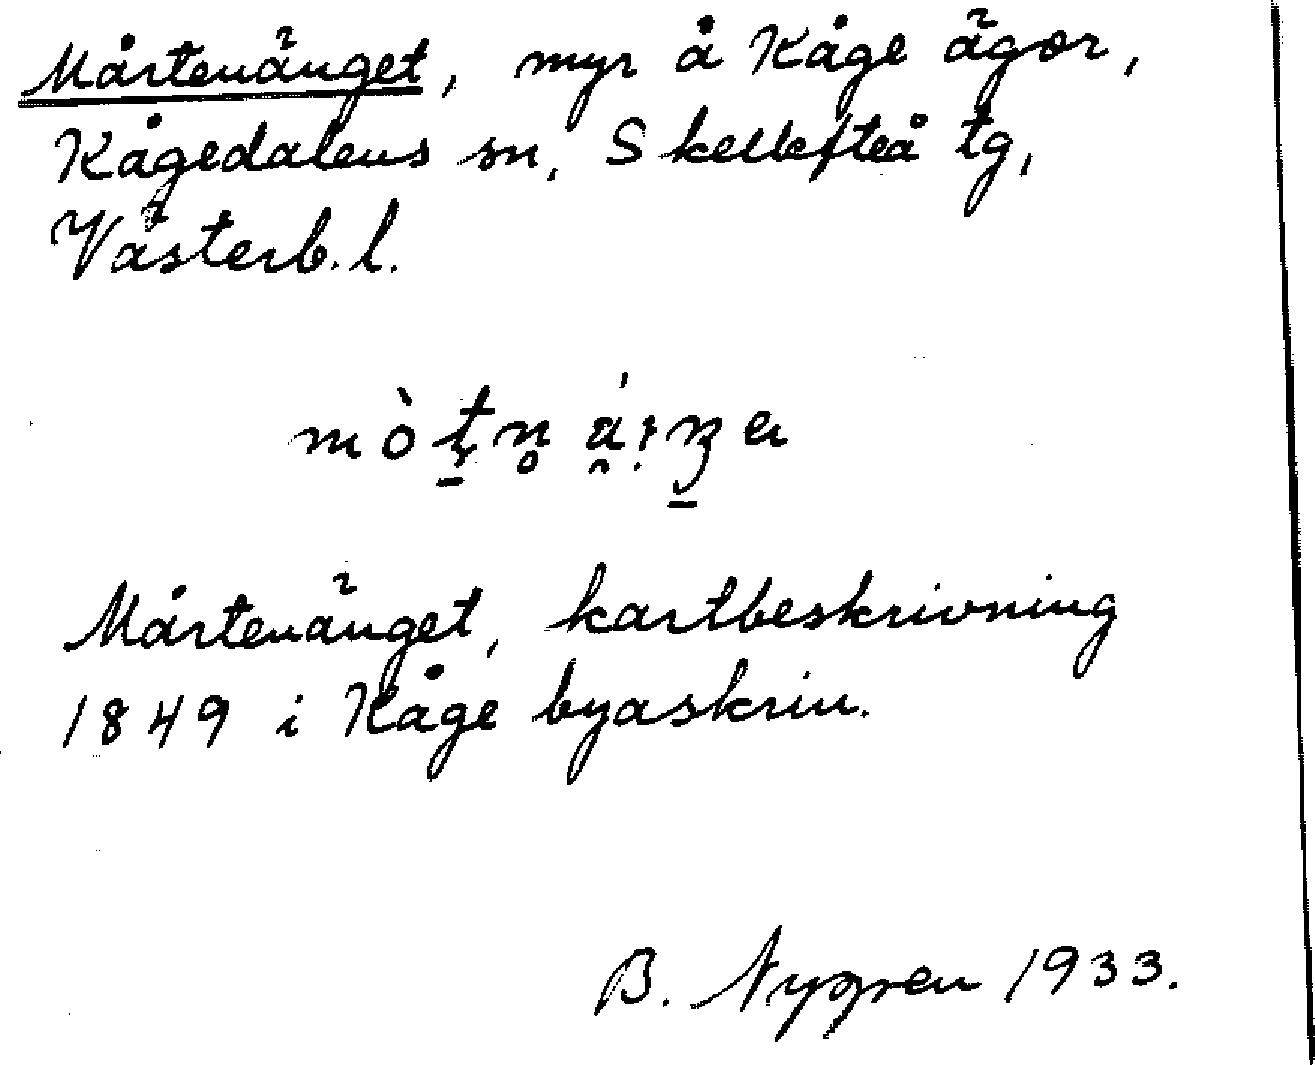 Mårtenänget, myr å Kåge ägor,
Kågedalens sn, Skellefteå tg,
Västerb. l.
Mårtenänget, kartbeskrivning
1849 i Kåge byaskrin.
B. Nygren 1933.